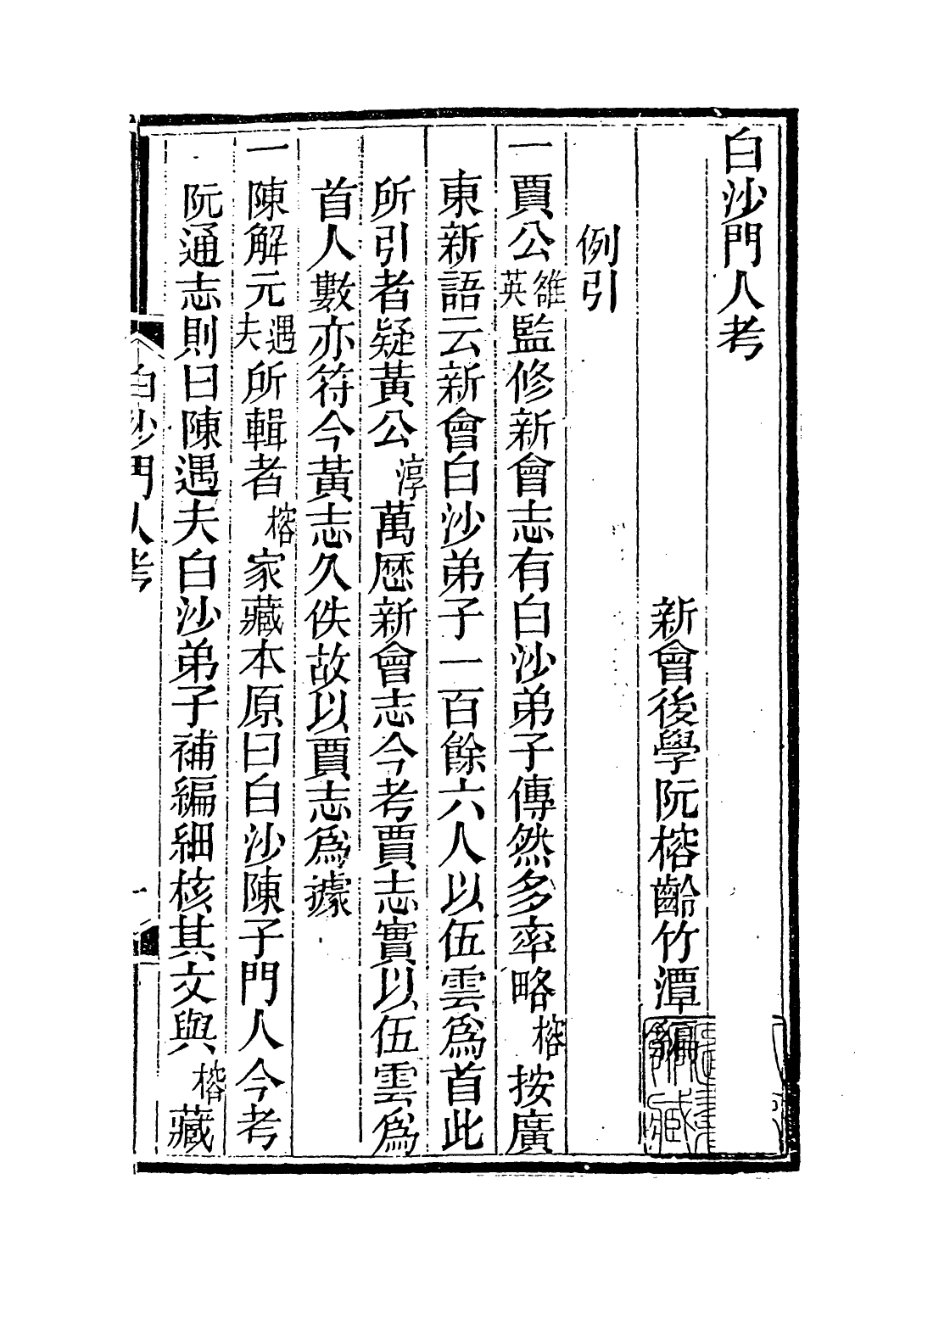 白沙門人考
新會後學阮榕齡竹潭編
例引
一賈公雒英監修新會志有白沙弟子傳然多率略榕按廣
東新語云新會白沙弟子一百餘六人以伍雲爲首此
所引者疑黃公淳萬厯新會志今考賈志實以伍雲爲
首人數亦符今黃志久佚故以賈志爲據
一陳解元遇夫所輯者榕家藏本原曰白沙陳子門人今考
阮通志則曰陳遇夫白沙弟子補編細核其文與榕藏
白沙門人考
一